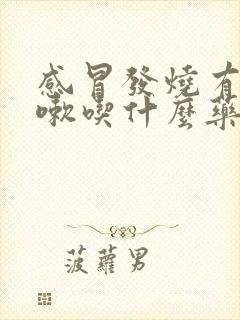 感冒發燒有
嗽喫什麼藥
菠蘿男